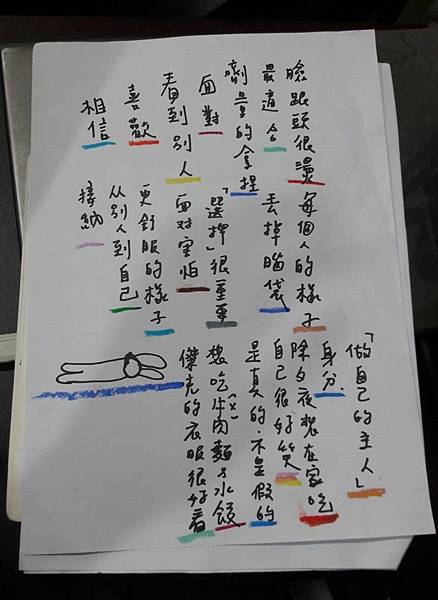 臉跟頭很燙
最適合
劑量的拿捏
面對
看到別人
喜歡
相信
每個人的樣子
丟掉腦袋
「選擇」很重要
面对害怕
更舒服的樣子
从別人到自己
接納
「做自己的主人」
身分
除夕夜想在家吃
自己很好笑
是真的.不是假的
想吃牛肉麵&水餃
(x)
傑克的衣服很好看